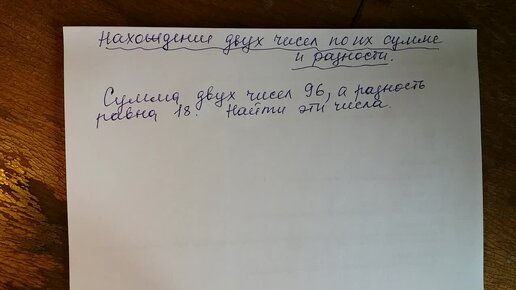 Нахождение двух чисел по их сумме
и разности.
Сумма двух чисел 96, а разность
равна 18. Найти эти числа.